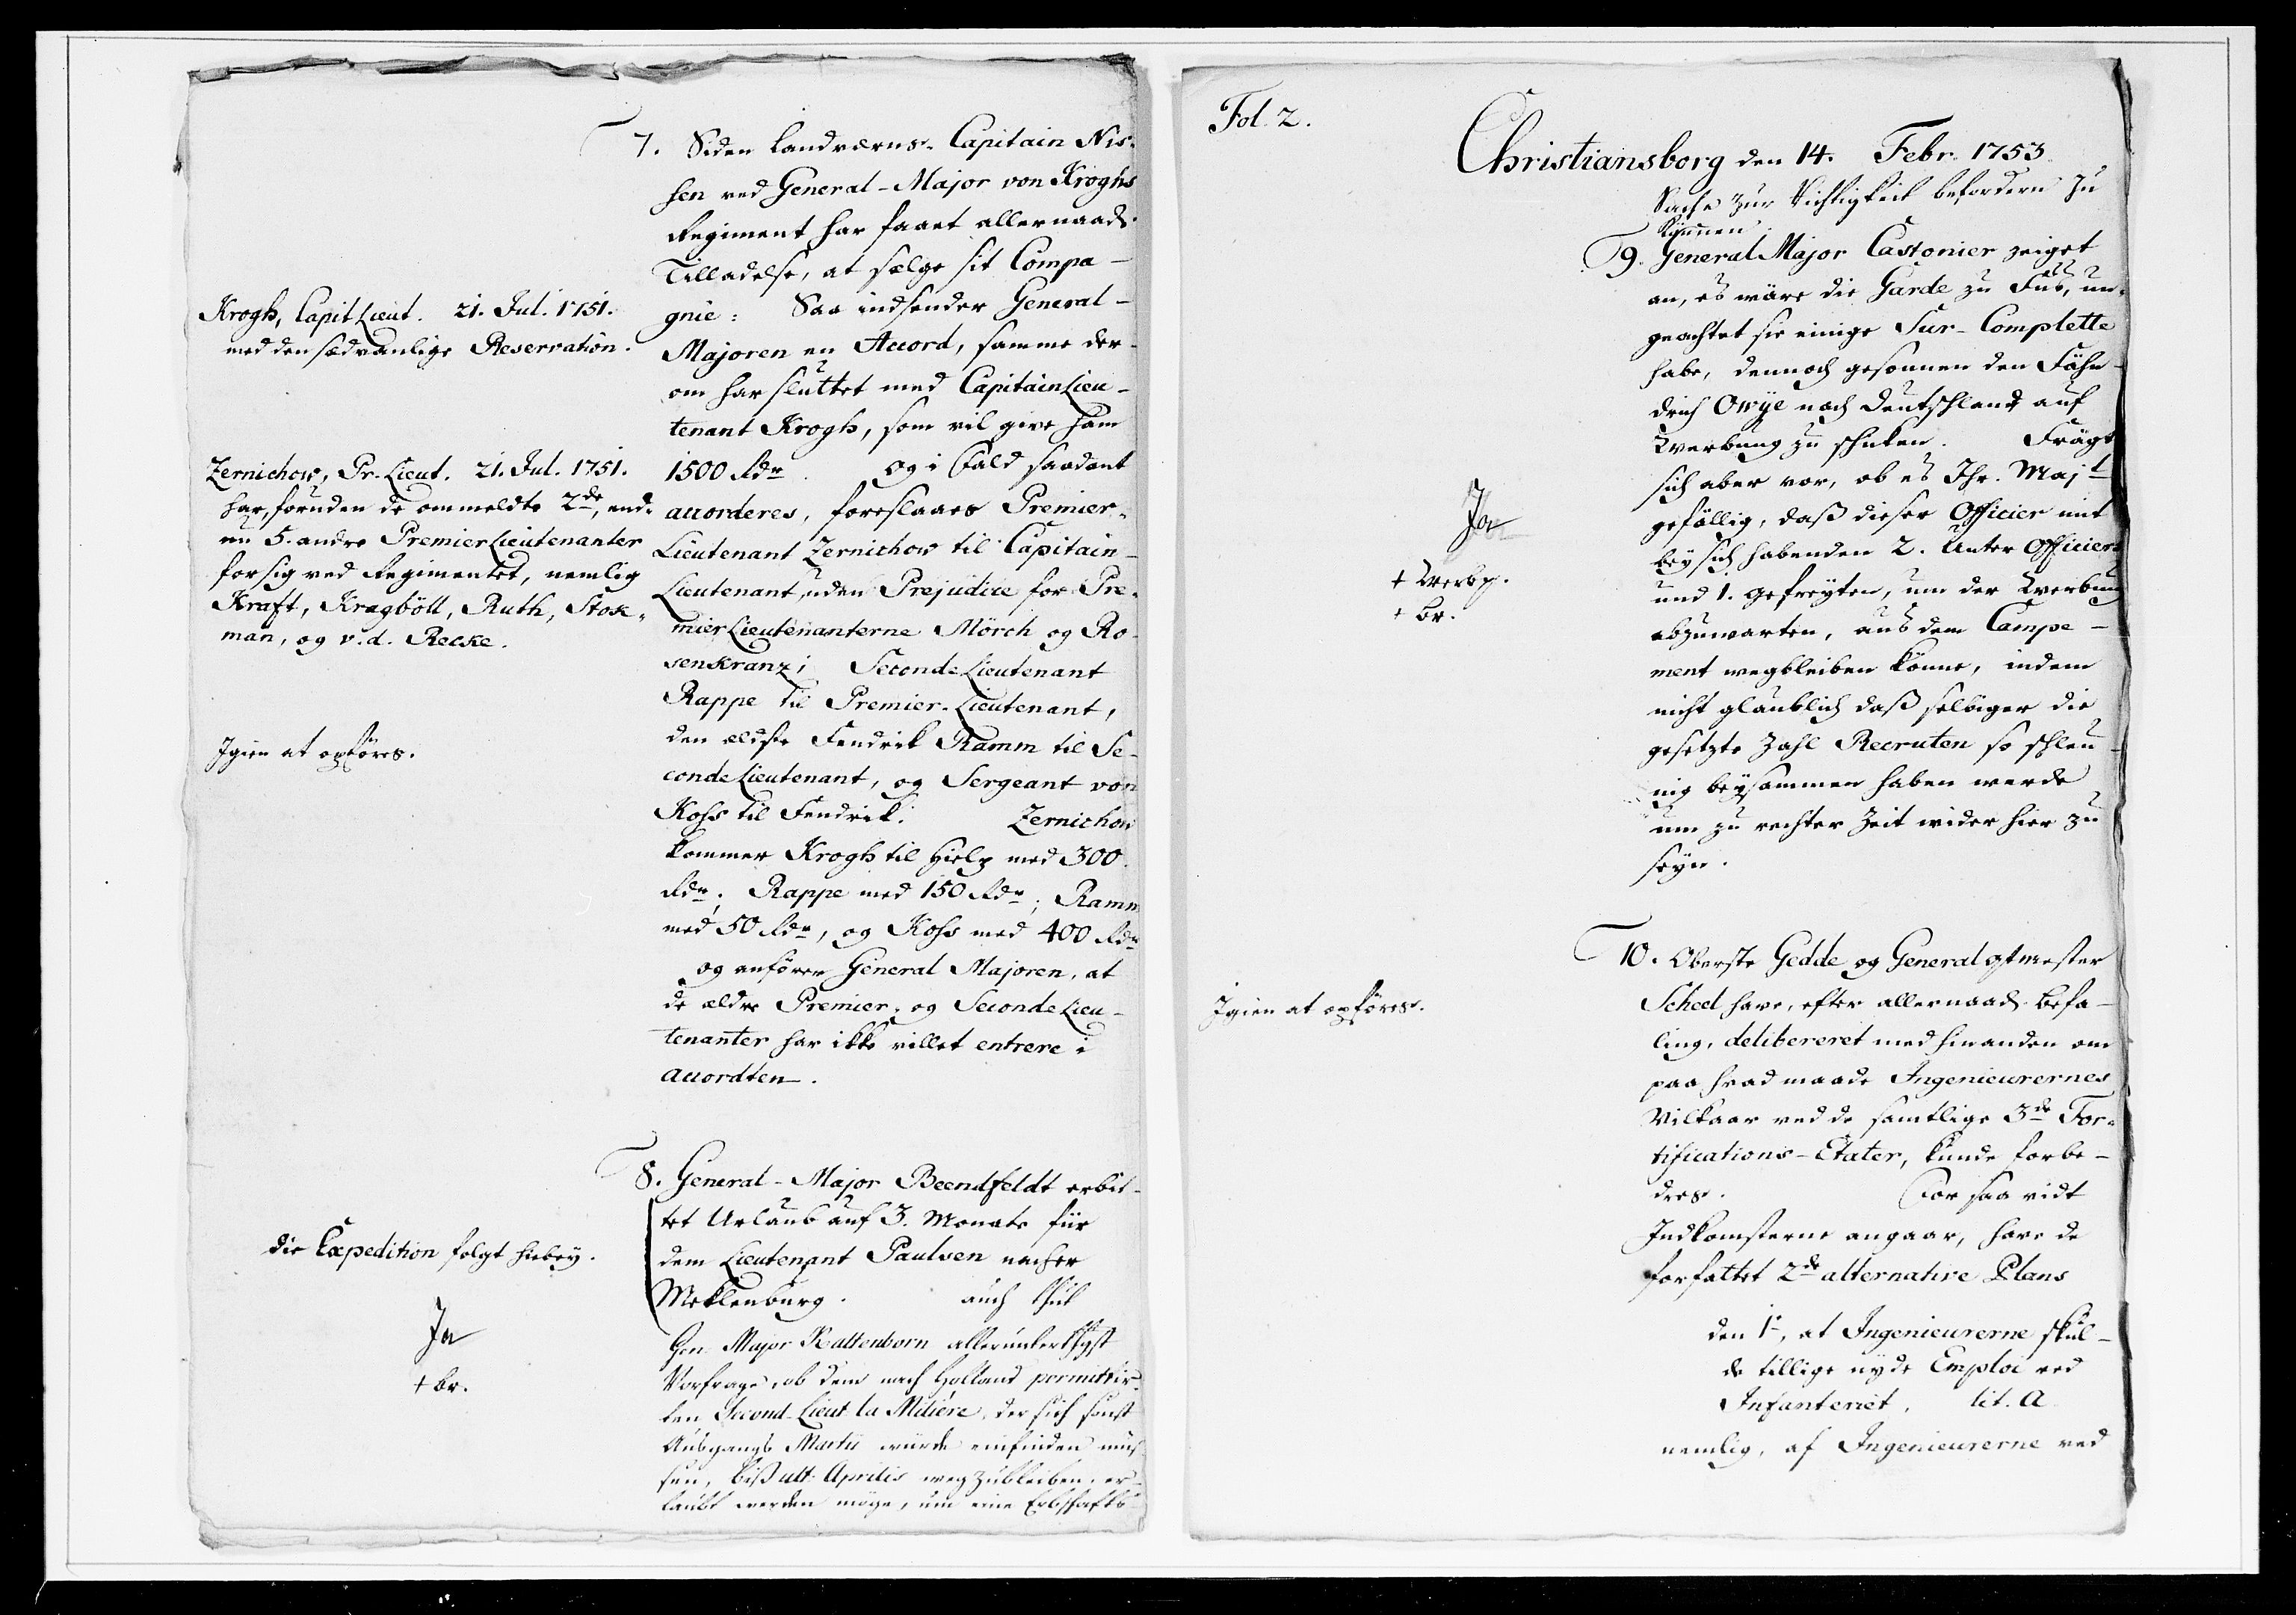 7. Siden Landværns-Capitain Nis-
sen ved General-Major von Kroghs
Regiment har faaet allernaads.
Tilladelse, at sælge sit Compa-
gnie: Saa indsender General-
Majoren en Accord, samme der-
om har sluttet med CapitainLieu-
tenant Krogh, som vil give ham
1500 Rdr. Og i Fald saadant
accorderes, foreslaaes Premier-
Lieutenant Zernichow til Capitain-
Lieutenant, uden Prejudice for Pre-
mierLieutenanterne Mörch og Ro-
senkranz; SecondeLieutenant
Rappe til Premier-Lieutenant,
den ældste Fendrik Ramm til Se-
condeLieutenant, og Sergeant von
Koss til Fendrik. Zernichow
kommer Krogh til Hielp med 300
Rdr.; Rappe med 150 Rdr.; Ramm
med 50 Rdr., og Koss med 400 Rdr.
og anfører General Majoren, at
de ældre Premier- og SecondeLieu-
tenanter har ikke villet entrere i
accordten.
Krogh, CapitLieut. 21. Jul. 1751.
med den sædvanlige Reservation.
Zernichow, Pr. Lieut. 21. Jul. 1751.
har, foruden de ommeldte 2de, end-
nu 5. andre PremierLieutenanter
for sig ved Regimentet, nemlig
Kraft, Kragböll, Ruth, Stok-
man, og v. d. Recke.
Igien at opføres.
8. General-Major Beenfeldt erbit-
tet Urlaub auf 3. Monate für
dem Lieutenant Paulsen nacher
Meklenburg. auch thut
Gen. Major Kattenborn allerunterthgst
Vorfrage, ob dem nach Holland permittir-
ten Second-Lieut. la Mitiére, der sich sonst
Ausgangs Martii würde einfinden müs-
sen, biss ult. Aprilis wegzubleiben, er-
laubt werden möge, um eine Erbschafts-
die Expedition folgt hiebey.
Ja
+ br.
Fol. 2.
Christiansborg den 14. Febr. 1753.
Sache zur Richtigkeit befordern zu
können.
9. General Major Castonier zeiget
an, es wäre die Garde zu Fus, un-
geachtet sie einige Sur-Complette
habe, dennoch gesonnen den Fähn-
drich Owÿe nach Deutschland auf
Werbung zu schicken. Frägt
sich aber vor, ob es Ihr. Majt.
gefällig, daß dieser Officier mit
bey sich habenden 2. Unter Officiers
und 1. Gefreyten, um der Werbung
abzuwarten, aus dem Campe-
ment wegbleiben könne, indem
nicht glaublich daß selbiger die
gesetzte Zahl Recruten so schleu-
nig beysammen haben werde
um zu rechter Zeit wider hier zu
seyn.
Ja
+ Werbg.
+ br.
10. Oberste Gedde og General qtmester
Scheel have, efter allernaads. Befa-
ling, delibereret med hinanden om
paa hvad maade Ingenieurernes
Vilkaar ved de samtlige 3de For-
tifications-Etater, kunde forbe-
dres. For saa vidt
Indkomsterne angaar, have de
forfattet 2de alternative Plans
den 1e, at Ingenieurerne skul-
de tillige nyde Emploi ved
Infanteriet, lit. A
nemlig, af Ingenieurerne ved
Igien at opføres.